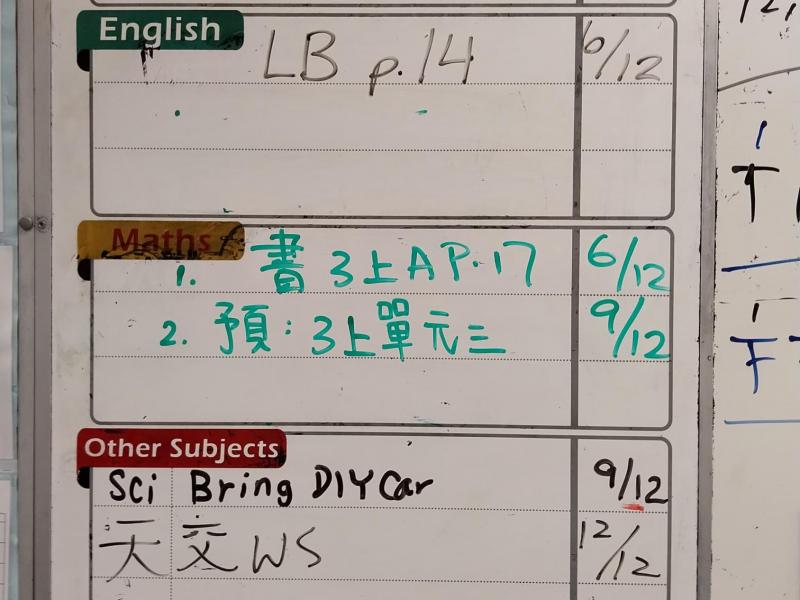 English
LB p.14 6/12
Maths
1. 書 3上A P.17 6/12
2. 預: 3上單元三 9/12
Other Subjects
Sci Bring DIY Car 9/12
天 交 WS 12/12
12,
1
T
1